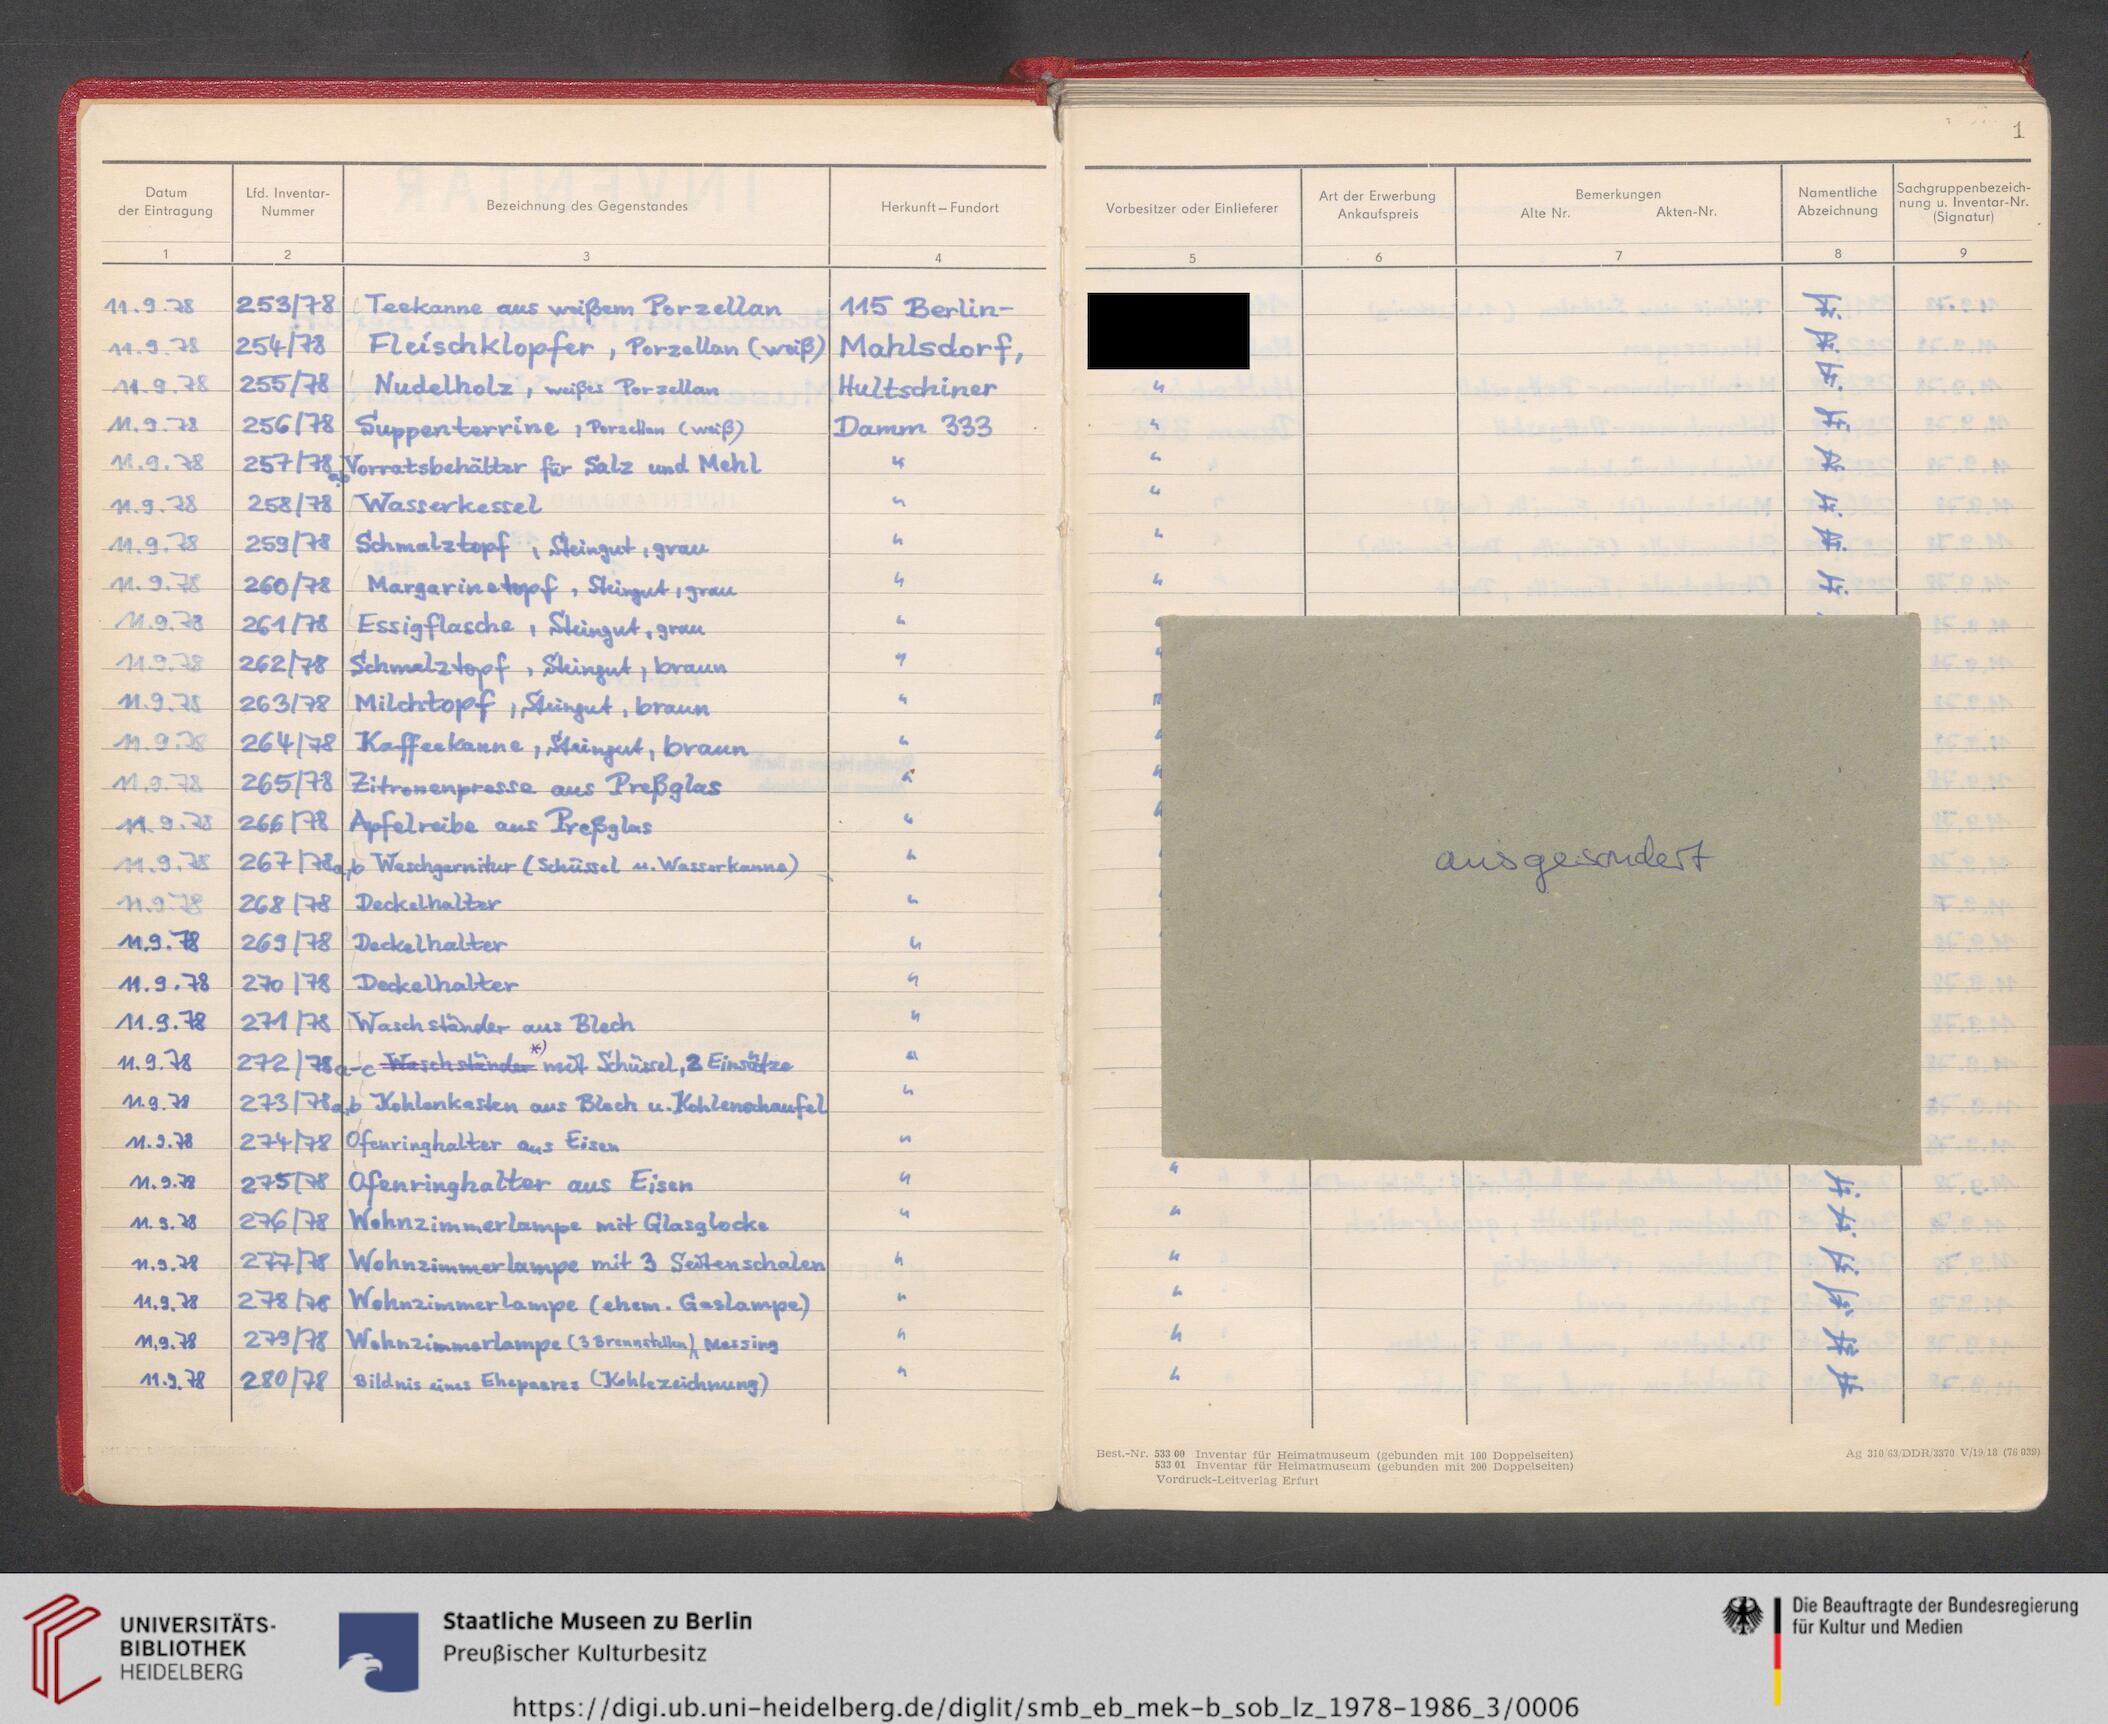 1
Datum der Eintragung | Lfd. Inventar-Nummer | Bezeichnung des Gegenstandes | Herkunft – Fundort | Vorbesitzer oder Einlieferer | Art der Erwerbung Ankaufspreis | Bemerkungen Alte Nr. Akten-Nr. | Namentliche Abzeichnung | Sachgruppenbezeich-nung u. Inventar-Nr. (Signatur)
1 2 3 4 5 6 7 8 9
11.9.78 253/78 Teekanne aus weißem Porzellan 115 Berlin-
11.9.78 254/78 Fleischklopfer, Porzellan (weiß) Mahlsdorf,
11.9.78 255/78 Nudelholz, weißes Porzellan Hultschiner "
11.9.78 256/78 Suppenterrine, Porzellan (weiß) Damm 333 "
11.9.78 257/78 Vorratsbehälter für Salz und Mehl " "
11.9.78 258/78 Wasserkessel " "
11.9.78 259/78 Schmalztopf, Steingut, grau " "
11.9.78 260/78 Margarinetopf, Steingut, grau " "
11.9.78 261/78 Essigflasche, Steingut, grau " "
11.9.78 262/78 Schmalztopf, Steingut, braun " "
11.9.78 263/78 Milchtopf, Steingut, braun " "
11.9.78 264/78 Kaffeekanne, Steingut, braun " "
11.9.78 265/78 Zitronenpresse aus Preßglas " "
11.9.78 266/78 Apfelreibe aus Preßglas " "
11.9.78 267/78a,b Waschgarnitur (Schüssel u. Wasserkanne) "
11.9.78 268/78 Deckelhalter "
11.9.78 269/78 Deckelhalter "
11.9.78 270/78 Deckelhalter "
11.9.78 271/78 Waschständer aus Blech "
11.9.78 272/78a-c Waschständer *) mit Schüssel, 2 Einsätze "
11.9.78 273/78a,b Kohlenkasten aus Blech u. Kohlenschaufel "
11.9.78 274/78 Ofenringhalter aus Eisen "
11.9.78 275/78 Ofenringhalter aus Eisen " "
11.9.78 276/78 Wohnzimmerlampe mit Glasglocke " "
11.9.78 277/78 Wohnzimmerlampe mit 3 Seitenschalen " "
11.9.78 278/78 Wohnzimmerlampe (ehem. Gaslampe) " "
11.9.78 279/78 Wohnzimmerlampe (3 Brennstellen), Messing " "
11.9.78 280/78 Bildnis eines Ehepaares (Kohlezeichnung) " "
ausgesondert
Best.-Nr. 533 00 Inventar für Heimatmuseum (gebunden mit 100 Doppelseiten)
533 01 Inventar für Heimatmuseum (gebunden mit 200 Doppelseiten)
Vordruck-Leitverlag Erfurt
Ag 310/63/DDR/3370 V/19/18 (76 039)
UNIVERSITÄTS-
BIBLIOTHEK
HEIDELBERG
Staatliche Museen zu Berlin
Preußischer Kulturbesitz
Die Beauftragte der Bundesregierung
für Kultur und Medien
https://digi.ub.uni-heidelberg.de/diglit/smb_eb_mek-b_sob_lz_1978-1986_3/0006